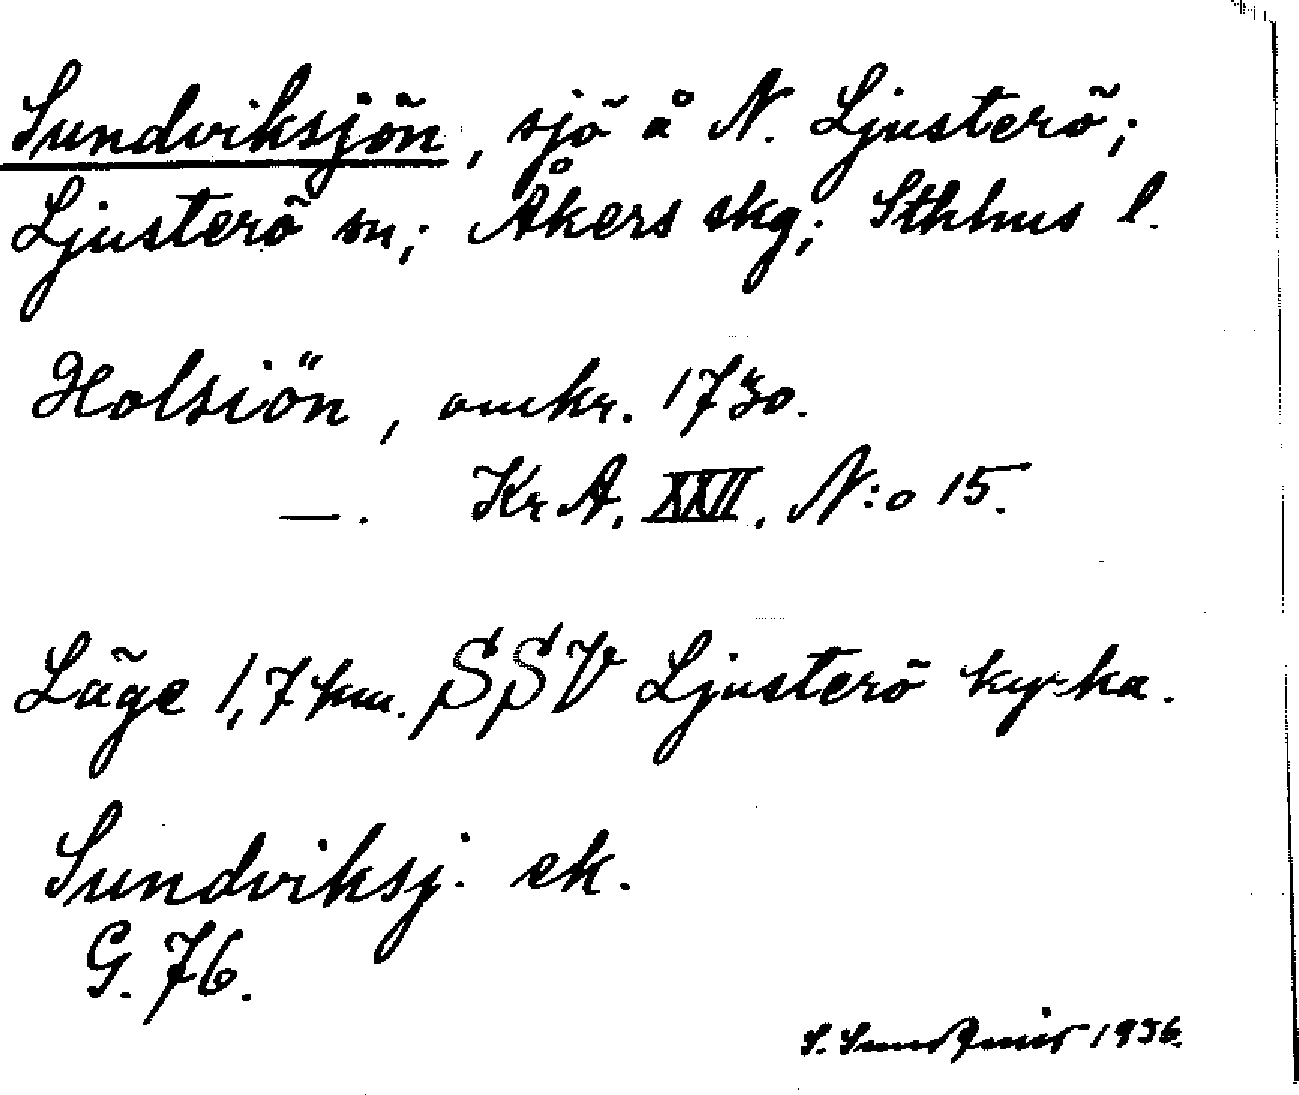 Sundviksjön, sjö å N. Ljusterö;
Ljusterö sn; Åkers skg; Sthlms l.
Holsiön, omkr. 1730.
—. Kr A. XXII. N:o 15.
Läge 1,7 km. SSV Ljusterö kyrka.
Sundviksj. ek.
G. 76.
S. 1936.